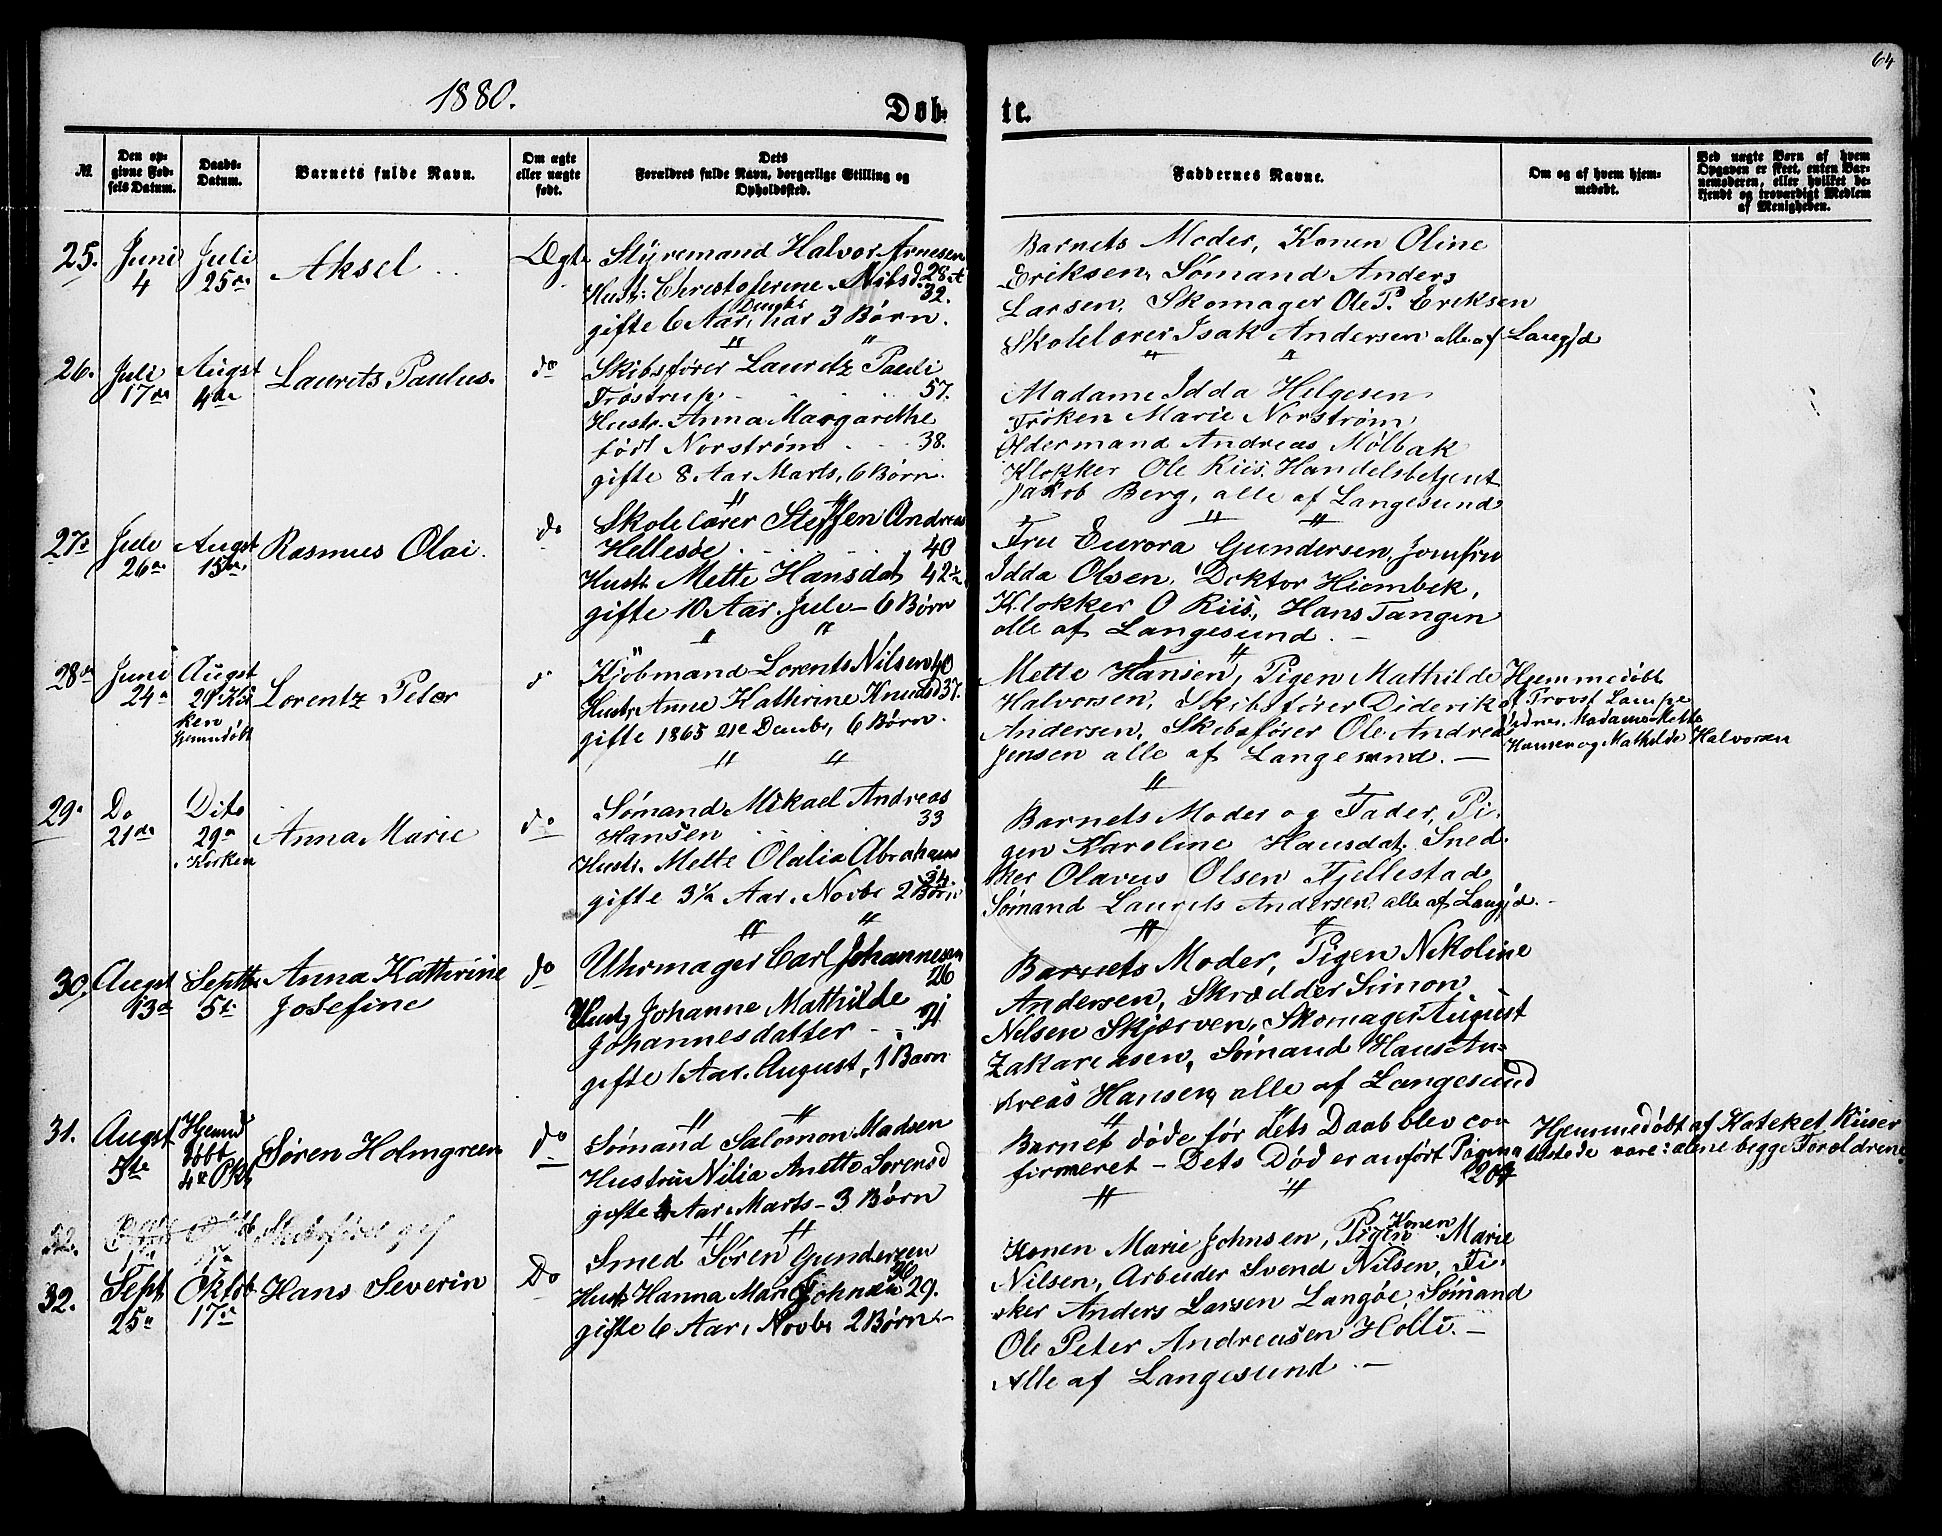 64
1880.
Døb-
te.
№
Den op-
givne Fød-
sels Datum.
Daabs-
Datum.
Barnets fulde Navn.
Om ægte
eller uægte
født.
Dets
Forældres fulde Navn, borgerlige Stilling og
Opholdssted.
Faddernes Navne.
Om og af hvem hjem-
medøbt.
Ved uægte Børn af hvem
Opgaven er skeet, enten Bar-
nemoderen, eller hvilket be-
kjendt og troværdigt Medlem
af Menigheden.
25.
Juni
4
Juli
25de
Aksel
Ægte
Styrmand Halvor Arnesen
28
Hust: Christoferine Nilsd.
32.
gifte 6 Aar, har 3 Børn.
Barnets Moder, Konen Oline
Eriksen, Sømand Anders
Larsen, Skomager Ole P. Eriksen
Skolelærer Isak Andersen alle af Langsd
26.
Juli
17de
Augst
4de
Laurits Paulus.
do
Skibsfører Lauritz Pauli
Frøstrup 57.
Hustr. Anna Margarethe
født Norstrøm 38.
gifte 8 Aar Marts, 6 Børn.
Madame Idda Helgesen
Frøken Marie Norstrøm
Oldermand Andreas Mølbak
Klokker Ole Riis. Handelsbetjent
Jakob Berg, alle af Langesund
27de
Jule
26de
Augst
15de
Rasmus Olai.
do
Skolelærer Steffen Andreas
Hellesøe 40
Hustr Mette Hansdat 42½
gifte 10 Aar Jule - 6 Børn
Fru Eurora Gundersen, Jomfru
Idda Olsen, Doktor Hiembek,
Klokker O Riis, Hans Tangen
alle af Langesund. —
28de
Juni
24de
Augst
29 Kir
ken
Hjemdøbt
Lorentz Peter
do
Kjøbmand Lorents Nilsen 40
Hustr Anne Kathrine Knudsd 37.
gifte 1865 21e Decmb, 6 Børn.
Mette Hansen, Pigen Mathilde
Halvorsen, Skibsfører Diderik
Andersen, Skibsfører Ole Andreas
Jensen alle af Langesund. —
Hjemmedøbt
af Provst Lampe
Vidner, Madame Mette
Hansen og Mathilde Halvorsen
29de
Do
21de
Dito
29de
Kirken
Anna Marie
do
Sømand Mikael Andreas
Hansen 33
Hustr. Mette Olalia Abrahams
34.
gifte 3½ Aar. Novbr 2 Børn
Barnets Moder og Fader, Pi-
gen Karoline Hansdat. Sned-
ker Olavus Olsen Fjellestad
Sømand Laurits Andersen alle af Langsd. —
30.
Augst
13de
Septbr
5te
Anna Kathrine
Josefine
do
Uhrmager Carl Johannesen
26
Hustr Johanne Mathilde
Johannesdatter 21
gifte 1 Aar. August, 1 Barn
Barnets Moder, Pigen Nikoline
Andersen, Skrædder Simon
Nilsen Skjærven, Skomager August
Zakariasen, Sømand Hans An-
dreas Hansen, alle af Langesund
31.
Augst
5te
Hjemd
døbt
4de Oktb
Søren Holmgreen
do
Sømand Salomon Madsen
Hustru Nilia Anette Sørensd
gifte 4 Aar Marts - 3 Børn
Barnet døde før dets Daab blev con
firmeret - Dets Død er anført Pagina
204
Hjemmedøbt af Kateket Riiser
tilstede vare alene begge Forældrene
32.
32.
Sept
25de
Oktob
17de
Hans Severin
Do
Smed Søren Gundersen
Hustr Hanna Mari Johnsen 29.
gifte 6 Aar, Novbr 2 Børn
Konen Marie Johnsen, Konen Marie
Nilsen, Arbeider Svend Nilsen, Fi-
sker Anders Larsen Langøe, Sømand
Ole Peter Andreasen Holli. —
Alle af Langesund. —